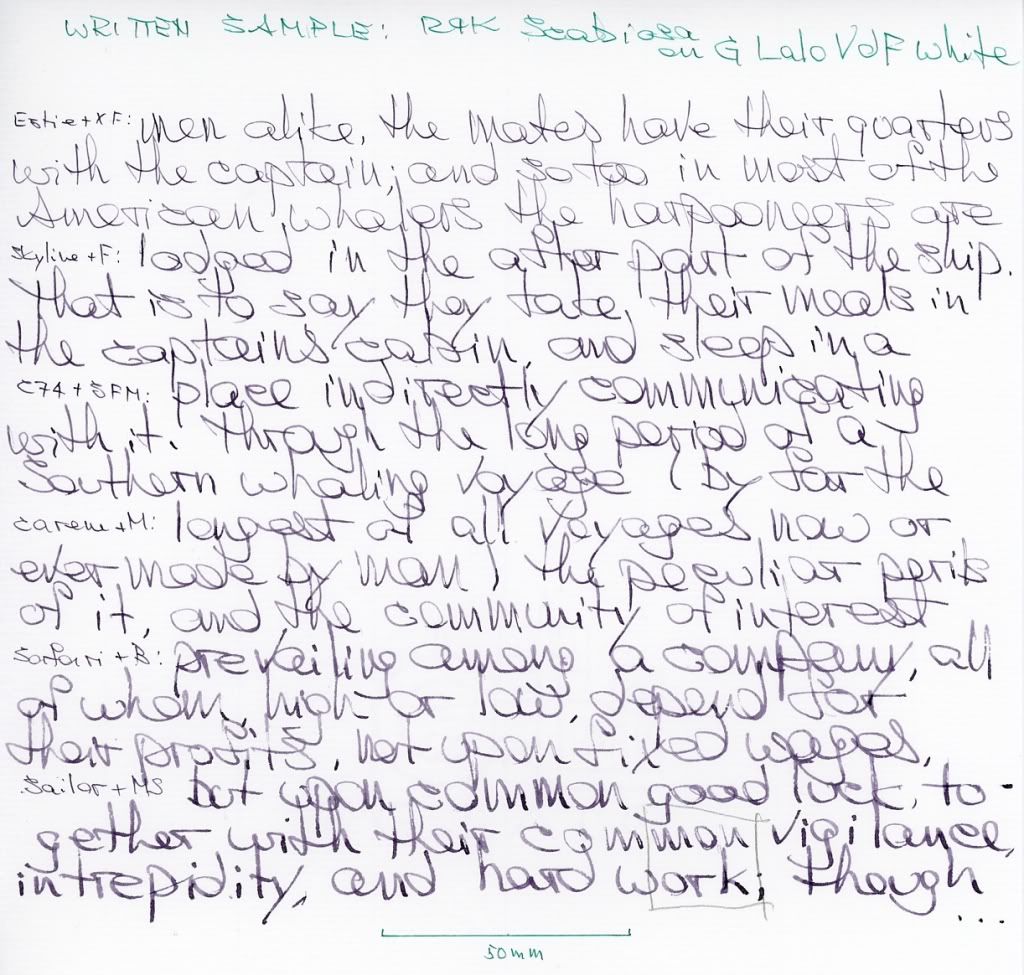 WRITTEN SAMPLE: R&K Scabiosa
on G Lalo VdF white
Estie+XF: men alike, the mates have their quarters
with the captain; and so too in most of the
American whalers the harpooneers are
Skyline+F: lodged in the after part of the ship.
That is to say they take their meals in
the captain's cabin, and sleep in a
C74+SFM: place indirectly communicating
with it. Through the long period of a
Southern whaling voyage (by far the
Carene+M: longest of all voyages now or
ever made by man) the peculiar perils
of it, and the community of interest
Safari+B: prevailing among a company, all
of whom, high or low, depend for
their profits, not upon fixed wages,
Sailor+MS but upon common good luck, to-
gether with their common vigilance,
intrepidity, and hard work; though
...
50mm